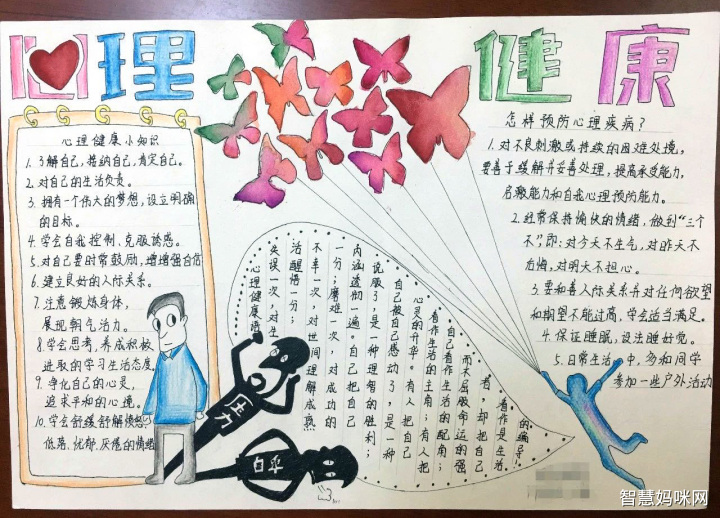 心理健康
心理健康小知识
1. 了解自己,接纳自己,肯定自己。
2. 对自己的生活负责。
3. 拥有一个伟大的梦想,设立明确
的目标。
4. 学会自我控制、克服诱惑。
5. 对自己要时常鼓励,增增强自信
6. 建立良好的人际关系。
7. 注意锻炼身体,
展现朝气活力。
8. 学会思考,养成积极
进取的学习生活态度
9. 净化自己的心灵,
追求平和的心境。
10. 学会舒缓舒解愤怒
低落、忧郁、厌倦的情绪
压力
自卑
心理健康语
失误一次,对生
活醒悟一分;
不幸一次,对世间理解成熟
一分;磨难一次,对成功的
内涵透彻一遍。自己把自己
说服了,是一种理智的胜利;
自己被自己感动了,是一种
心灵的升华。有人把自己
看作生活的主角;有人把
自己看作生活的配角;
而不屈服命运的强
者,却把自己
看作是生活
的编导!
怎样预防心理疾病?
1. 对不良刺激或持续的困难处境,
要善于缓解并妥善处理,提高承受能力,
忍激能力和自我心理预防能力。
2. 经常保持愉快的情绪,做到“三个
不”,即:对今天不生气,对昨天不
后悔,对明天不担心。
3. 要和善人际关系并对任何欲望
和期望不能过高,学会适当满足。
4. 保证睡眠,设法睡好觉。
5. 日常生活中,多和同学
参加一些户外活动
智慧妈咪网